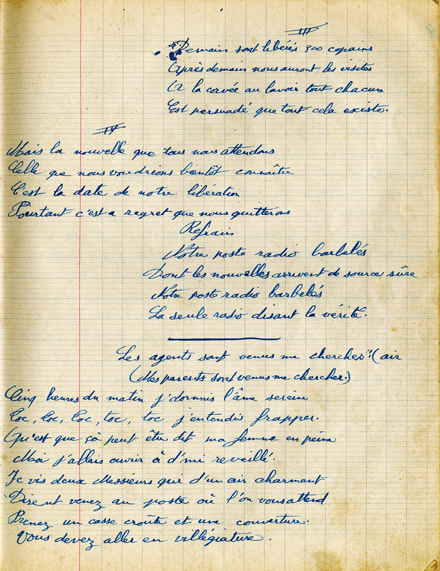 III
Demain sont libérés 300 copains
Après demain nous auront les visites
A la corvée au lavoir tout chacun
Est persuadé que tout cela existe.
IV
Mais la nouvelle que tous nous attendons
Celle que nous voudrions bientôt connaître
C'est la date de notre libération
Pourtant c'est a regret que nous quitterons
Refrain
Notre poste radio barbelés
Dont les nouvelles arrivent de source sûre
Notre poste radio barbelés
La seule radio disant la vérité.
Les agents sont venus me chercher (air
(Mes parents sont venus me chercher.)
Cinq heures du matin j'dormais l'âme serein
Toc, toc, toc, toc, toc j'entendis frapper.
Qu'est que ça peut être dit ma femme en peine
Moi j'allais ouvrir à d'mi reveillé.
Je vis deux Messieurs qui d'un air charmant
Dirent venez au poste où l'on vous attend
Prenez un casse croûte et une couverture.
Vous devez aller en villégiature.